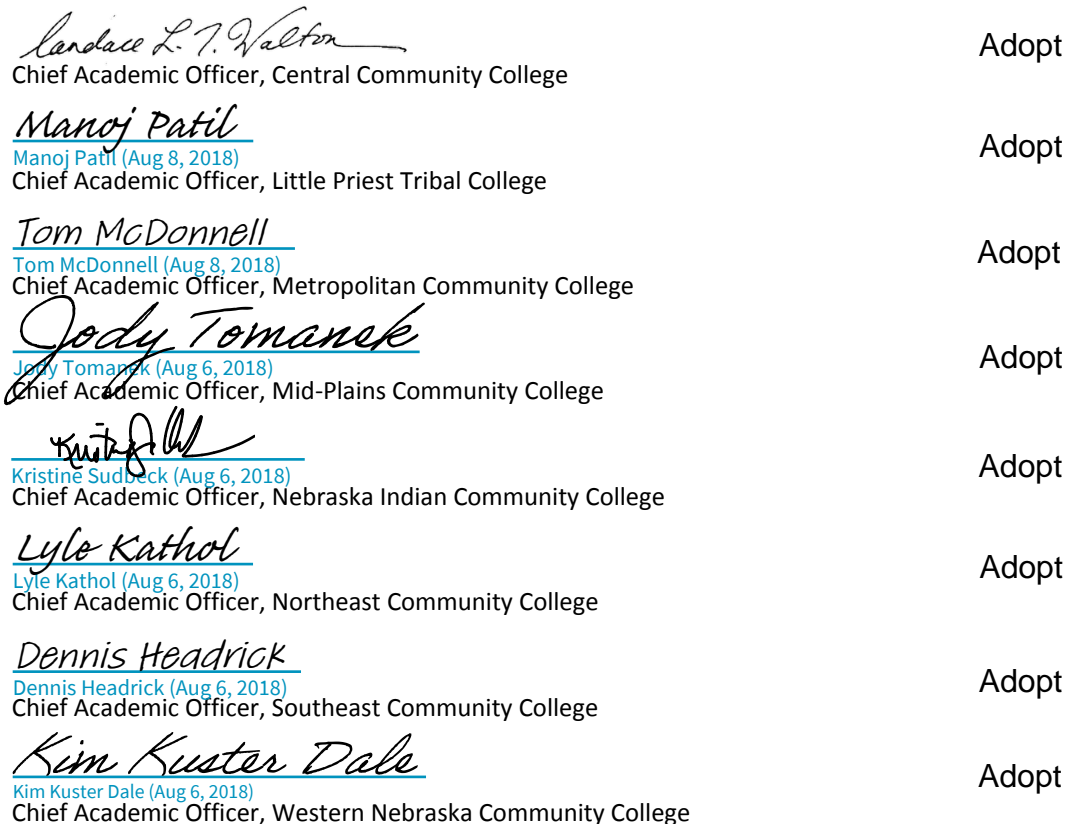 Candace L. T. Walton Adopt
Chief Academic Officer, Central Community College
Manoj Patil Adopt
Manoj Patil (Aug 8, 2018)
Chief Academic Officer, Little Priest Tribal College
Tom McDonnell Adopt
Tom McDonnell (Aug 8, 2018)
Chief Academic Officer, Metropolitan Community College
Jody Tomanek Adopt
Jody Tomanek (Aug 6, 2018)
Chief Academic Officer, Mid-Plains Community College
Adopt
Kristine Sudbeck (Aug 6, 2018)
Chief Academic Officer, Nebraska Indian Community College
Lyle Kathol Adopt
Lyle Kathol (Aug 6, 2018)
Chief Academic Officer, Northeast Community College
Dennis Headrick Adopt
Dennis Headrick (Aug 6, 2018)
Chief Academic Officer, Southeast Community College
Kim Kuster Dale Adopt
Kim Kuster Dale (Aug 6, 2018)
Chief Academic Officer, Western Nebraska Community College